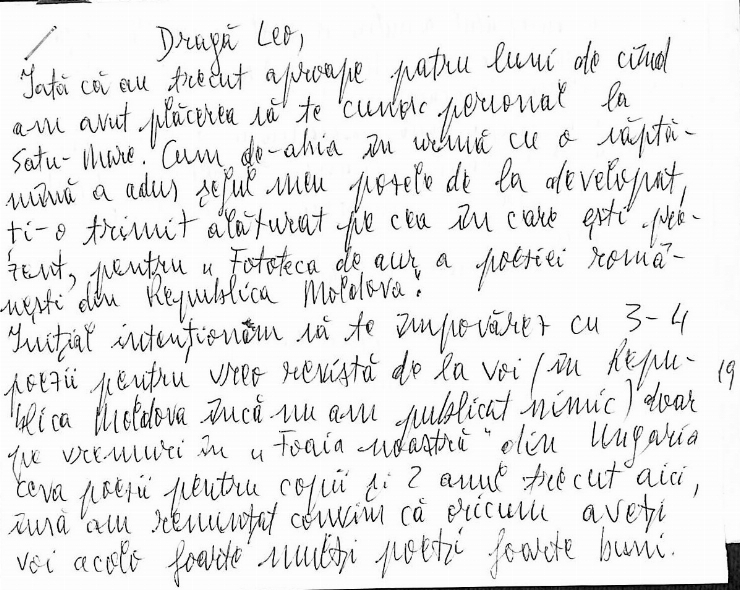 Dragă Leo,
Iată că au trecut aproape patru luni de cînd
am avut plăcerea să te cunosc personal la
Satu-Mare. Cum de-abia în urmă cu o săptă-
mînă a adus șeful meu pozele de la developat,
ți-o trimit alăturat pe cea în care ești pre-
zent, pentru „Fototeca de aur a poeziei româ-
nești din Republica Moldova".
Inițial intenționam să te împovărez cu 3-4
poezii pentru vreo revistă de la voi (în Repu-
blica Moldova încă nu am publicat nimic) doar
19
pe vremuri în „Foaia noastră" din Ungaria
ceva poezii pentru copii și 2 anul trecut aici,
însă am renunțat convins că oricum aveți
voi acolo foarte mulți poeți foarte buni.